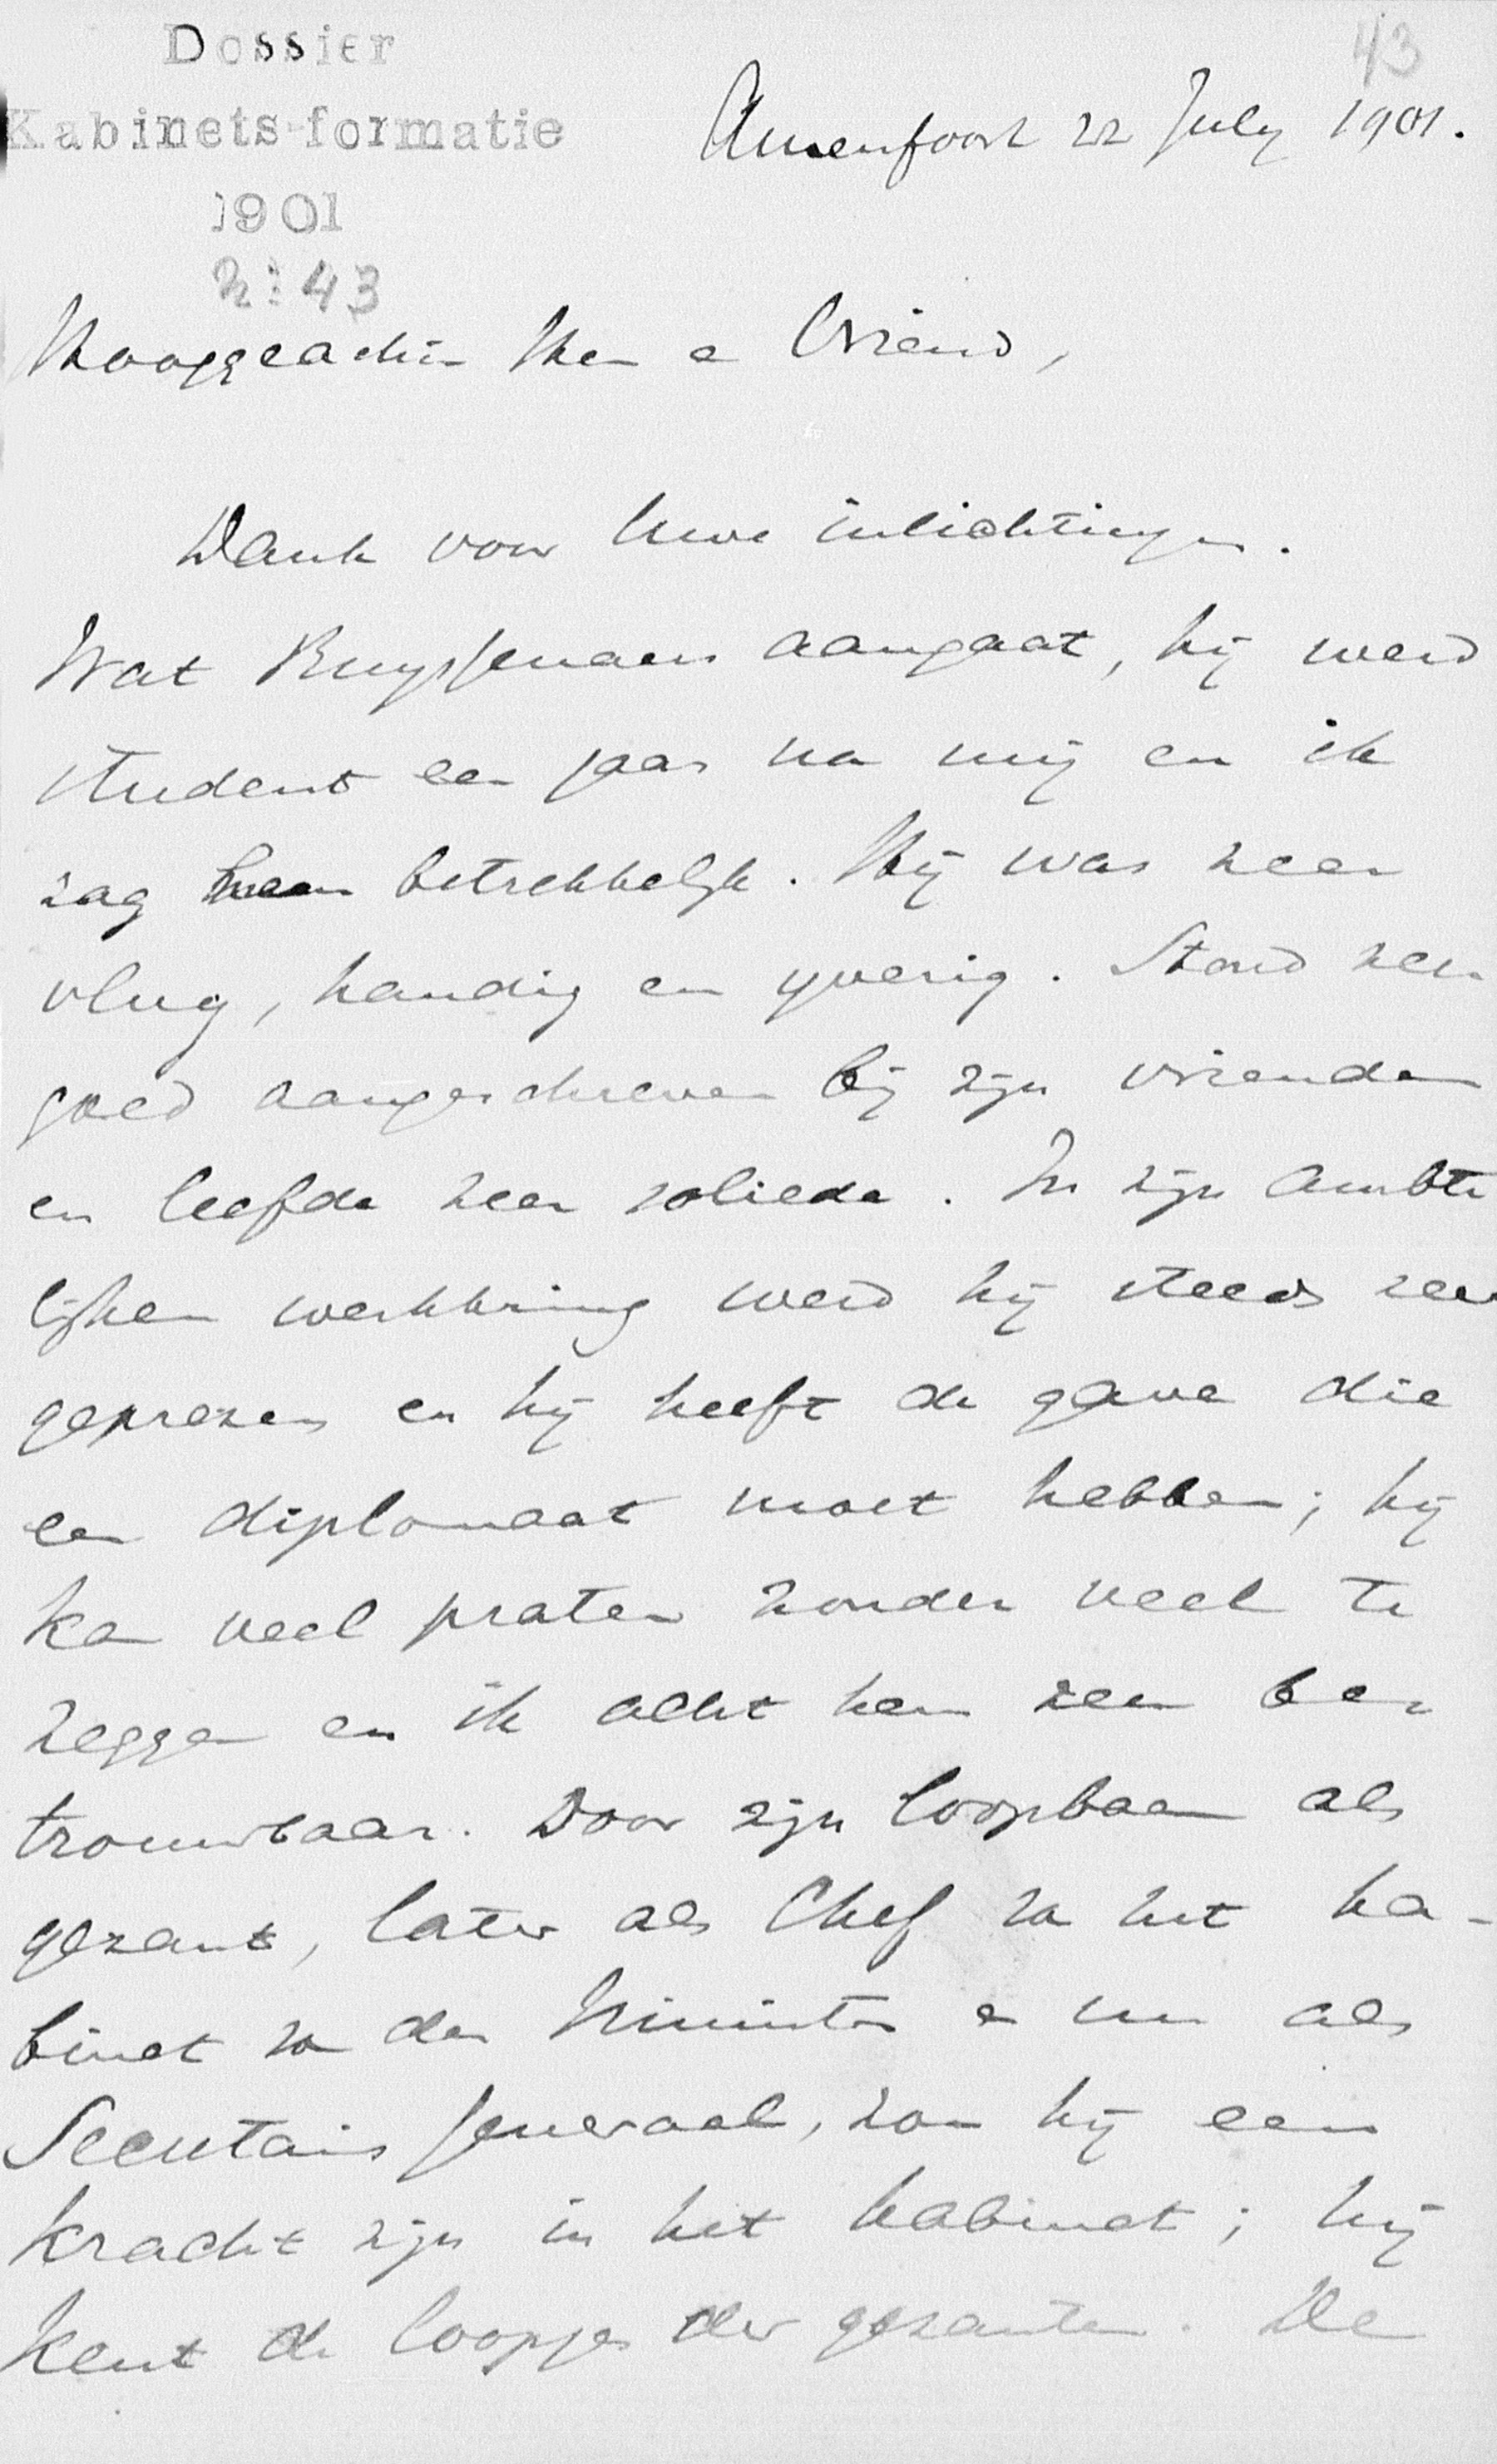 43
Dossier
Kabinets-formatie
1901
2:43
Amersfoort 22 July 1901.
Hooggeachte Heer en Vriend,
Dank voor Uwe inlichtingen.
Wat Ruyssenaers aangaat, hij werd
student een jaar na mij en ik
zag hem betrekkelijk. Hij was zeer
vlug, handig en yverig. Stond zeer
goed aangeschreven bij zijn vrienden
en leefde zeer soliede. In zijn ambte
lijken werkkring werd hij steeds zeer
geprezen en hij heeft de gave die
een diplomaat moet hebben; hij
kan veel praten zonder veel te
zeggen en ik acht hem zeer be=
trouwbaar. Door zijn loopbaan als
gezant, later als Chef van het ka-
binet van den Minister en nu als
Secretaris Generaal, zou hij een
kracht zijn in het kabinet; hij
kent de loopjes der gezanten. De